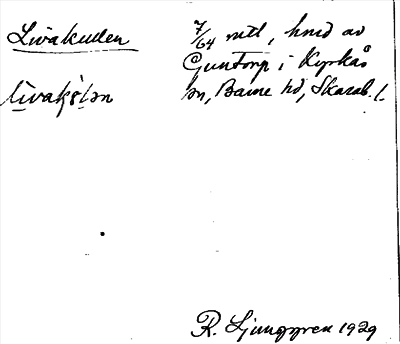 Livakullen 7/64 mtl, hmd av
Guntorp i Kyrkås
sn, Barne hd, Skarab. l.
R. Ljunggren 1929